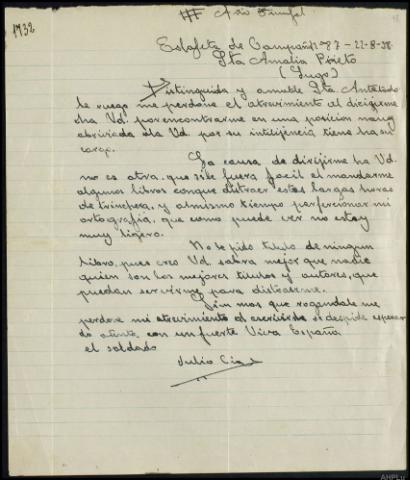 1732
III Año Triunfal
Estafeta de Campaña nº 87 - 22-8-38
Sta Amalia Prieto
(Lugo)
Distinguida y amable Sta Antetodo
le ruego me perdone el atrevimiento al dirijirme
ha Vd. por encontrarme en una posicion muy
ha Vd por su intelijencia tiene ha su
cargo.
La causa de dirijirme ha Vd.
no es otra, que si le fuera facil el mandarme
algunos libros conque distraer estas largas horas
de trinchera, y almismo tiempo perfercionar mi
ortografia, que como puede ver no estoy
muy ligero.
No le pido titulo de ningun
libro, pues creo Vd. sabra mejor que nadie
quien son los mejores titulos y autores, que
puedan servirme para distraerme.
Sin mas que rogandole me
perdone mi atrevimiento al escrivirle se despide esperan
do atento, con un fuerte Viva España
el soldado
Julio
AHPLu